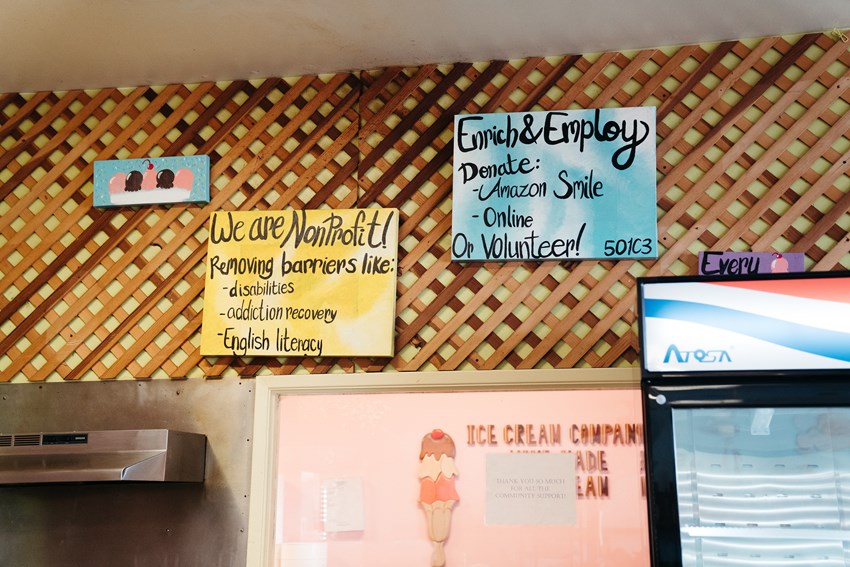 We are NonProfit!
Removing barriers like:
-disabilities
-addiction recovery
-English literacy
Enrich & Employ
Donate:
-Amazon Smile
-Online
Or Volunteer! 501C3
Every
ATOSA
ICE CREAM COMPAN
MADE
EAM
THANK YOU SO MUCH
FOR ALL THE
COMMUNITY SUPPORT!